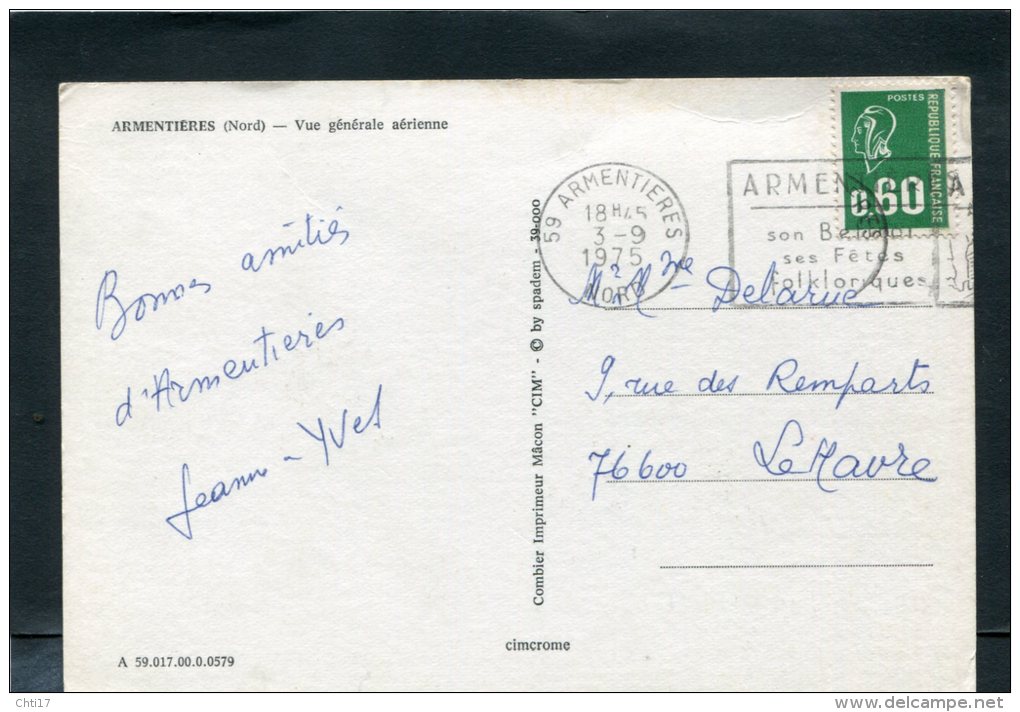 ARMENTIÈRES (Nord) — Vue générale aérienne
Bonnes amitiés
d'Armentières
Jeanne - Yves
A 59.017.00.0.0579
Combier Imprimeur Mâcon "CIM" - © by spadem - 39-000
cimcrome
59 ARMENTIERES
18H45
3-9
1975
NORD
ARMEN
son Beffroi
ses Fêtes
folkloriques
A
POSTES
REPUBLIQUE FRANÇAISE
0,60
Mr Mme Delarue
9, rue des Remparts
76600 Le Havre
Chti17
delcampe.net